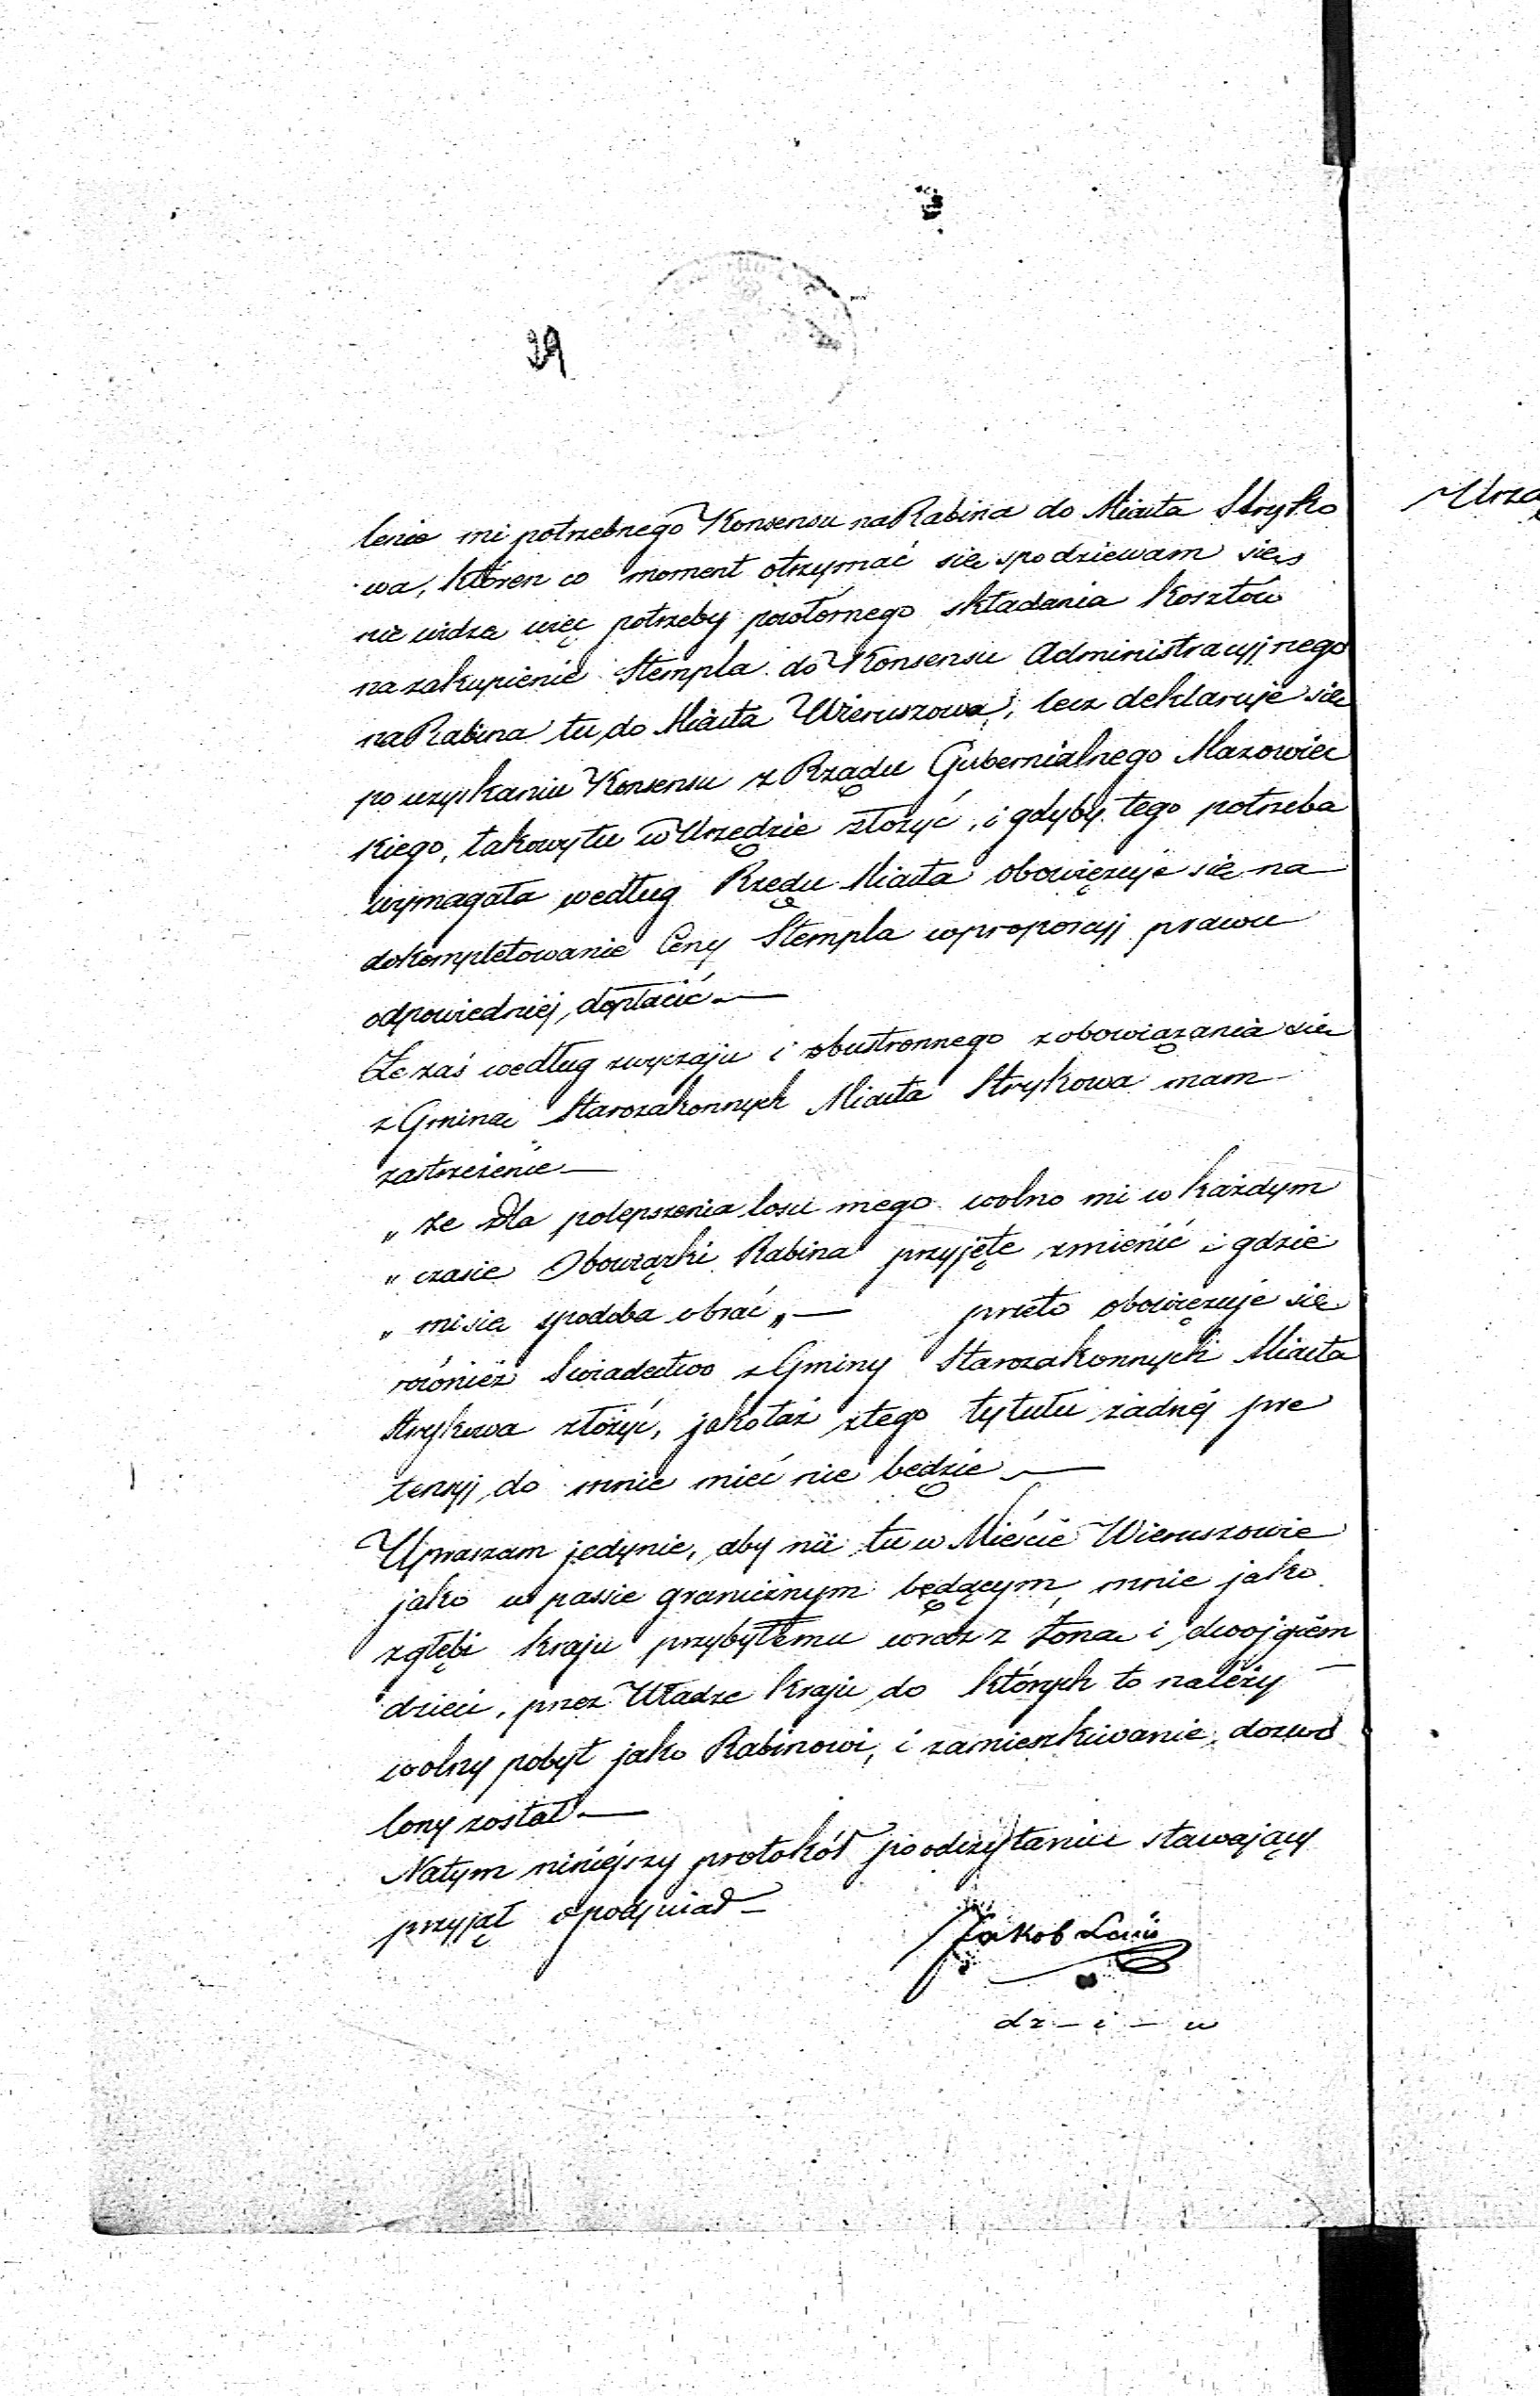 29
lenie mi potrzebnego Konsensu na Rabina do Miasta Stryko
wa, któren co moment otrzymać się spodziewam się,
nie widzę więc potrzeby powtórnego składania Kosztów
na zakupienie Stempla do Konsensu Administracyjnego
na Rabina tu do Miasta Wieruszowa, lecz deklaruje się
po uzyskaniu Konsensu z Rządu Gubernialnego Mazowiec
kiego, takowy tu w Urzędzie złożyć, i gdyby tego potrzeba
wymagała według Rzędu Miasta obowięzuje się na
dokompletowanie Ceny Stempla w proporcyj prawu
odpowiedniej, dopłacić.—
Że zaś według zwyczaju i obustronnego zobowiązania się
z Gminą Starozakonnych Miasta Strykowa mam
zastrzeżenie—
„ że dla polepszenia losu mego wolno mi w każdym
„ czasie Obowiązki Rabina przyjęte zmienić i gdzie
„ mi się spodoba obrać „— przeto obowięzuje się
również Świadectwo z Gminy Starozakonnych Miasta
Strykowa złożyć, jako taż z tego tytułu żadnej pre
tensyj, do mnie mieć nie będzie—
Upraszam jedynie, aby mi tu w Mieście Wieruszowie
jako w passie granicznym będącym, mnie jako
z głębi kraju przybyłemu wraz z żoną i dwojgiem
dzieci, przez Władze Kraju, do których to należy
wolny pobyt jako Rabinowi, i zamieszkiwanie, dozwo
lony został—
Na tym niniejszy protokół po odczytaniu stawający
przyjął i podpisał—
Jakob Lewi